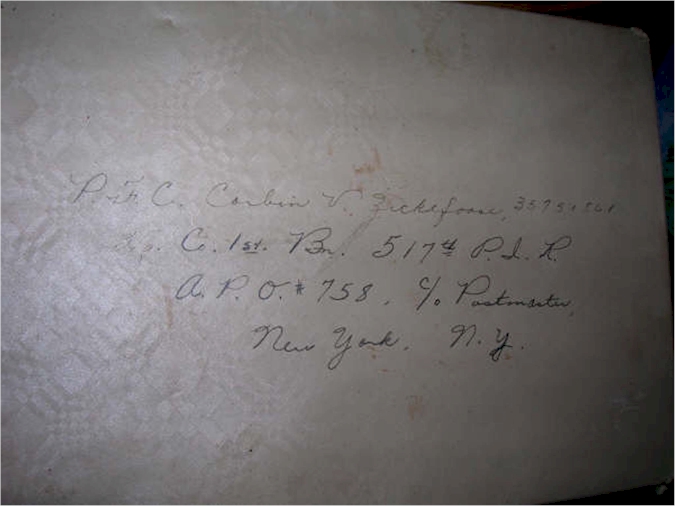 P.F.C. Corbin V. Zickefoose, 35751561
Hq. Co. 1st. Bn. 517th P.I.R.
A.P.O. # 758, c/o Postmaster,
New York, N.Y.